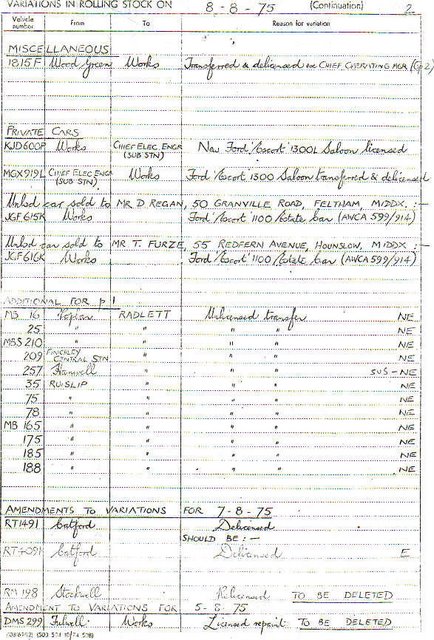 VARIATIONS IN ROLLING STOCK ON 8-8-75 (Continuation) 2
Vehicle number From To Reason for variation
MISCELLANEOUS
1815F Wood Green Works Transferred & delicensed ex CHIEF OPERATING MGR (Gp 2)
PRIVATE CARS
KJD600P Works CHIEF ELEC. ENGR (SUB STN) New Ford 'Escort' 1300L Saloon licensed
MGX919L CHIEF ELEC ENGR (SUB STN) Works Ford 'Escort' 1300 Saloon transferred & delicensed
Unlcd car sold to MR D REGAN, 50 GRANVILLE ROAD, FELTHAM, MIDDX. :—
JGF615K Works Ford 'Escort' 1100 Estate Car (AWCA 599/914)
Unlcd car sold to MR T. FURZE, 55 REDFERN AVENUE, HOUNSLOW, MIDDX :—
JGF616K Works Ford 'Escort' 1100 Estate Car (AWCA 599/914)
ADDITIONAL FOR p 1
MB 16 Poplar RADLETT Unlicensed transfer NE
25 " " " " NE
MBS 210 " " " " NE
209 FINCHLEY CENTRAL STN " " " NE
257 Hanwell " " " SUS - NE
35 RUISLIP " " " NE
75 " " " " NE
78 " " " " NE
MB 165 " " " " NE
175 " " " " NE
185 " " " " NE
188 " " " " NE
AMENDMENTS TO VARIATIONS FOR 7-8-75
RT1491 Catford Delicensed
SHOULD BE :—
RT4091 Catford Delicensed E
RM 198 Stockwell Relicensed TO BE DELETED
AMENDMENT TO VARIATIONS FOR 5-8-75
DMS 299 Fulwell Works Licensed repaint TO BE DELETED